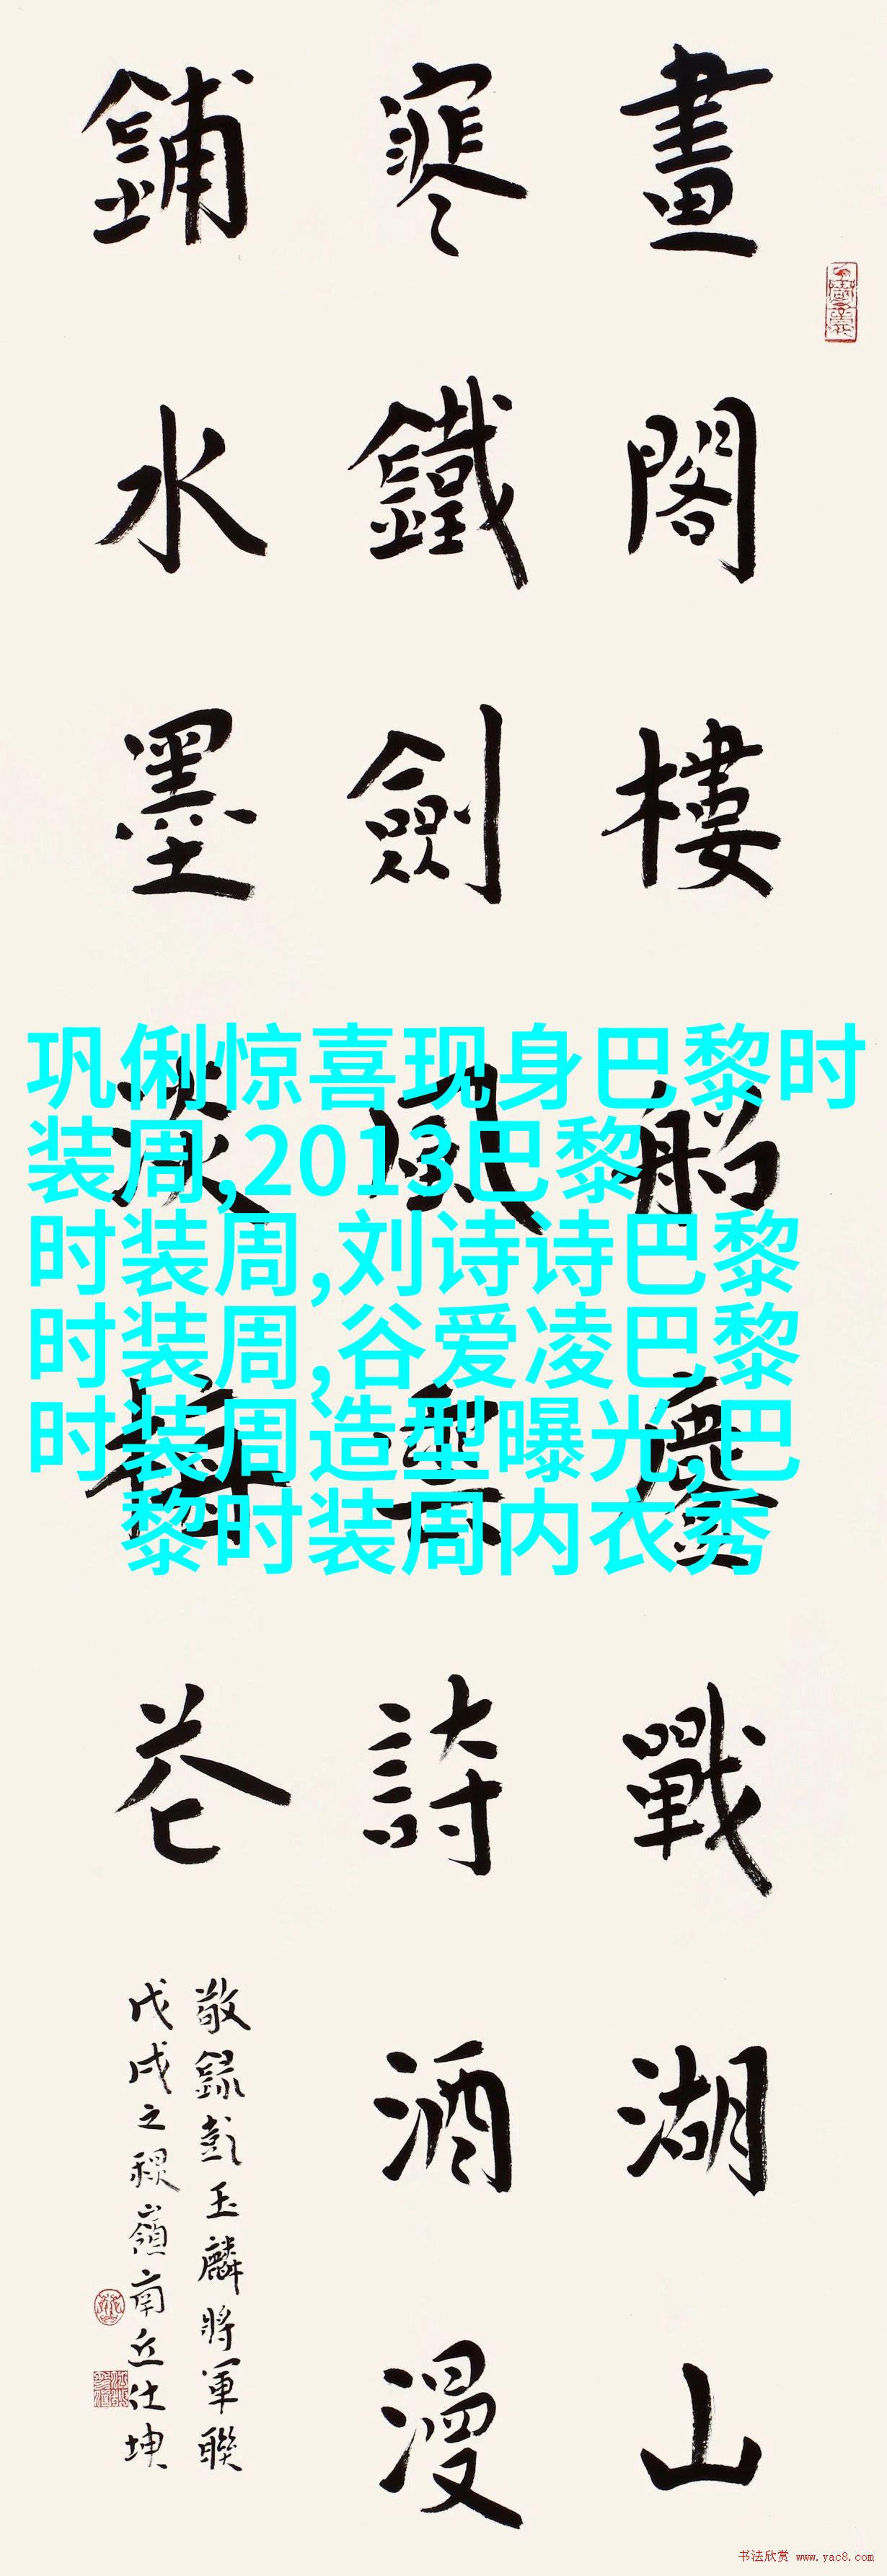 巩俐惊喜现身巴黎时
装周,2013巴黎
时装周,刘诗诗巴黎
时装周,谷爱凌巴黎
时装周造型曝光,巴
黎时装周内衣秀
畫閣樓船鏖戰湖山
寒鐵劍風雲詩酒漫
鋪水墨淡花
敬錄彭玉麟將軍聯
戊戌之嶺南丘仕坤
书法欣赏 www.yac8.com